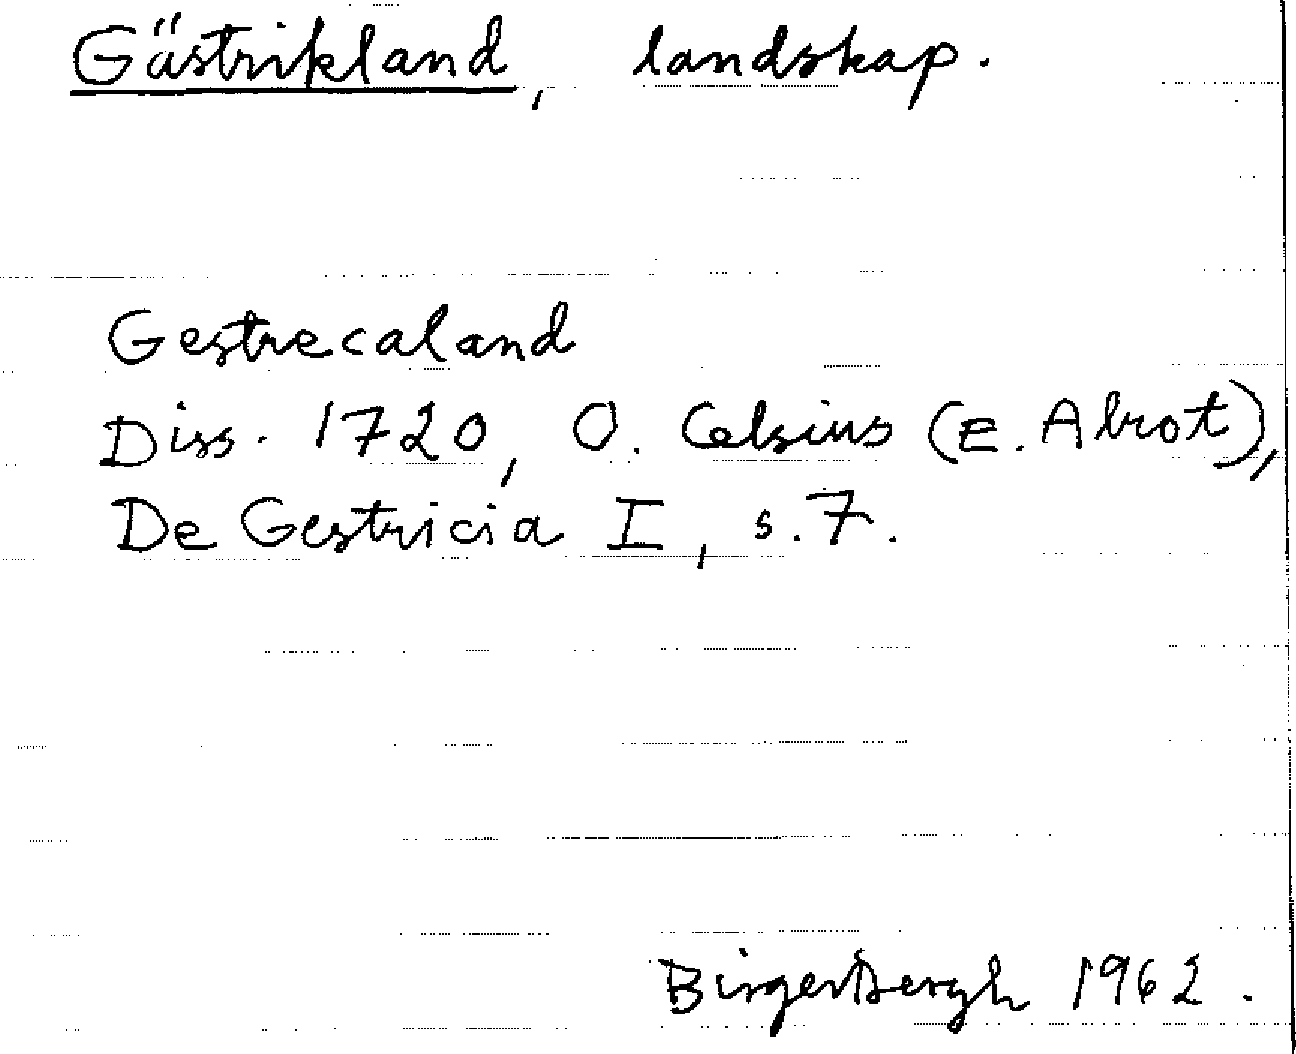 Gästrikland, landskap.
Gestrecaland
Diss. 1720, O. Celsius (E. Abrot),
De Gestricia I, s. 7.
Birger Bergh 1962.